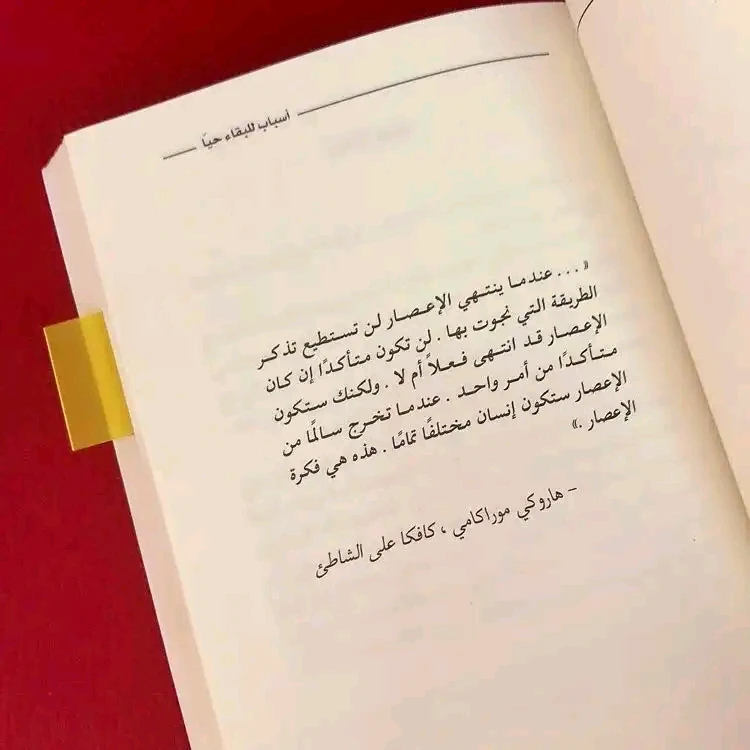 أسباب للبقاء حيّا
«... عندما ينتهي الإعصار لن تستطيع تذكر
الطريقة التي نجوت بها . لن تكون متأكدًا إن كان
الإعصار قد انتهى فعلاً أم لا . ولكنك ستكون
متأكدًا من أمر واحد . عندما تخرج سالمًا من
الإعصار ستكون إنسان مختلفًا تمامًا . هذه هي فكرة
الإعصار .»
- هاروكي موراكامي ، كافكا على الشاطئ